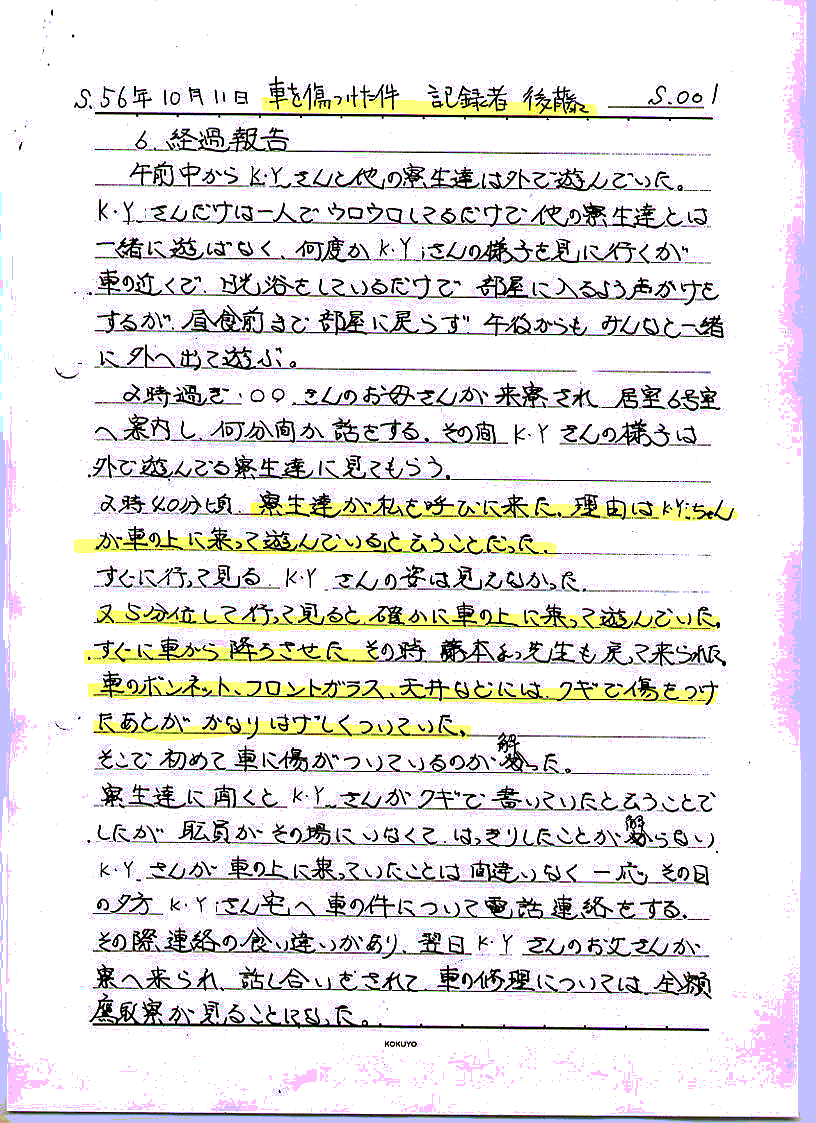 S.56年10月11日 車を傷つけた件 記録者 後藤 S.001
6. 経過報告
午前中から K・Y さんと他の寮生達は外で遊んでいた。
K・Y さんだけは一人でウロウロしてるだけで他の寮生達とは
一緒に遊ばなく、何度か K・Y さんの様子を見に行くが
車の近くで、日光浴をしているだけで 部屋に入るよう声かけを
するが、昼食前まで部屋に戻らず 午後からも みんなと一緒
に外へ出て遊ぶ。
2時過ぎ・〇〇 さんのお母さんが来寮され 居室6号室
へ案内し、何分間か話をする。その間 K・Y さんの様子は
外で遊んでる寮生達に見てもらう。
2時40分頃、寮生達が私を呼びに来た。理由はK・Yちゃん
が車の上に乗って遊んでいると云うことだった。
すぐに行って見る、K・Y さんの姿は見えなかった。
又5分位して行って見ると、確かに車の上に乗って遊んでいた。
すぐに車から降ろさせた。その時 藤本 先生も戻って来られた。
車のボンネット、フロントガラス、天井などには、クギで傷をつけ
たあとが かなりはげしくついていた。
そこで初めて車に傷がついているのが解った。
寮生達に聞くと K・Y さんがクギで書いていたと云うことで
したが 職員がその場にいなくて、はっきりしたことが解らない
K・Y さんが車の上に乗っていたことは間違いなく 一応、その日
の夕方 K・Y さん宅へ車の件について電話連絡をする。
その際、連絡の食い違いがあり、翌日 K・Y さんのお父さんが
寮へ来られ、話し合いをされて 車の修理については、全額
鷹取寮が見ることになった。
KOKUYO